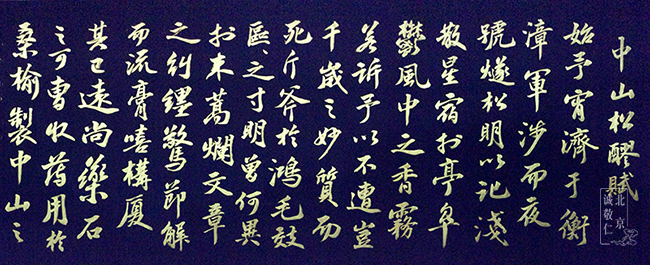 中山松醪賦
始予宵濟于衡
漳軍涉而夜
號燧松明以記淺
散星宿扵亭皋
鬱風中之香霧
若訴予以不遭豈
千歲之妙質而
死斤斧於鴻毛效
區之寸明曾何異
扵束蒿爛文章
之糾纆驚節解
而流膏嘻構廈
其已遠尚藥石
之可曹收薄用於
桑榆製中山之
北京
诚敬仁